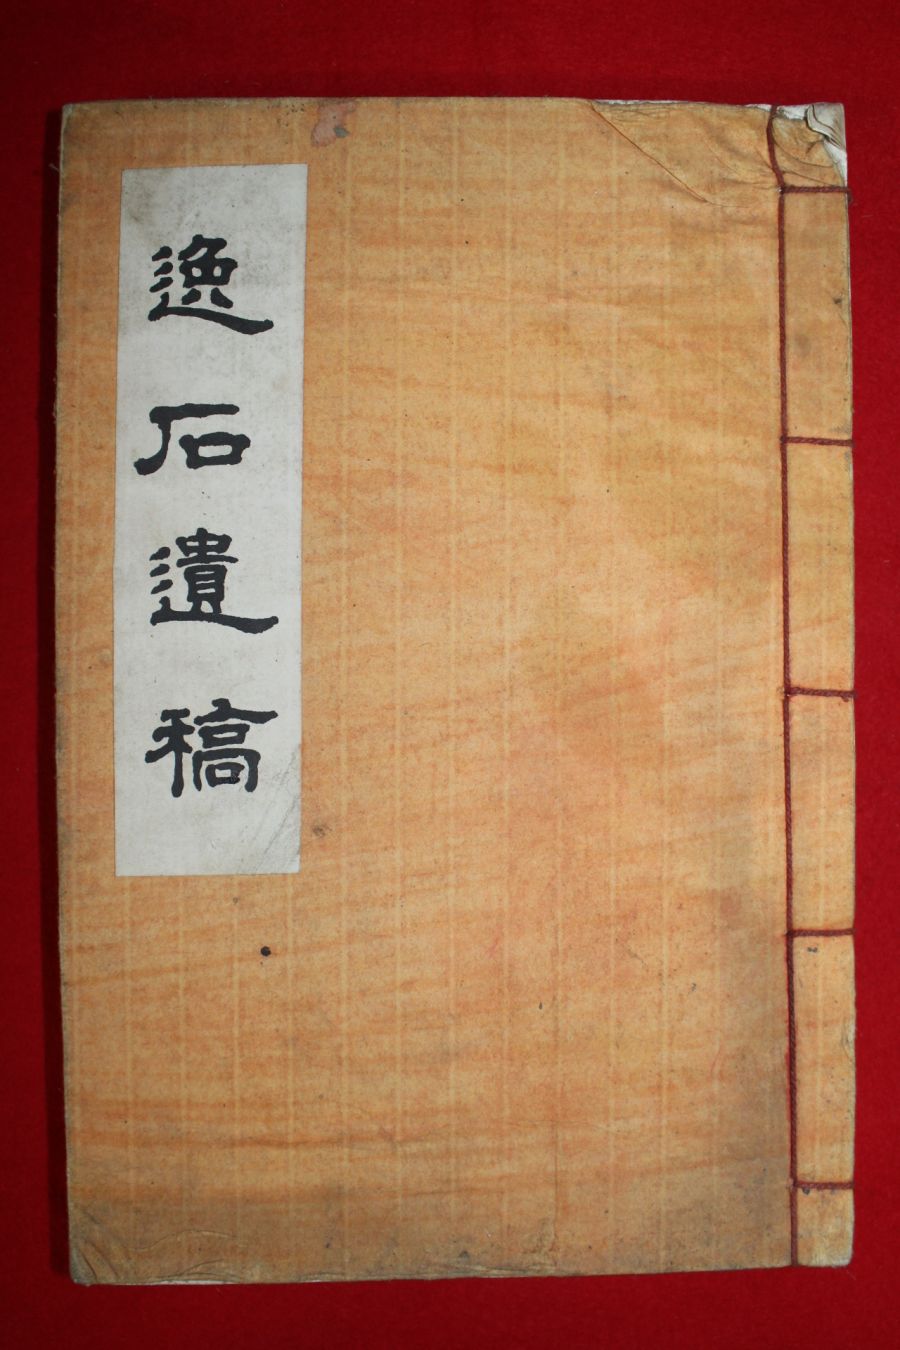 逸石遺稿